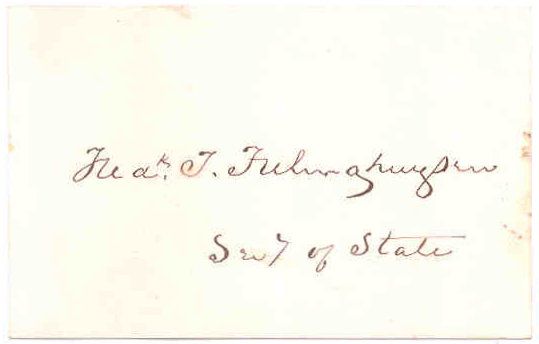 Fredk. T. Frelinghuysen
Secy of State